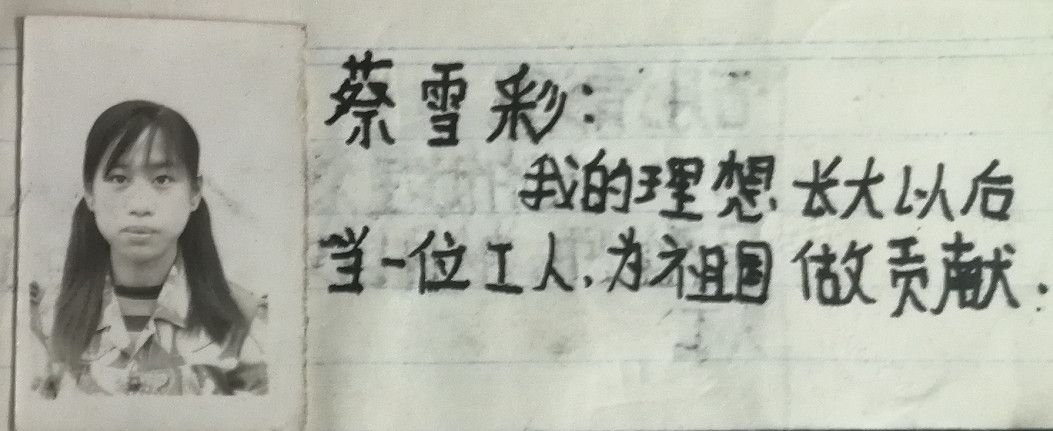 蔡雪彩：
我的理想长大以后
当一位工人，为祖国做贡献．